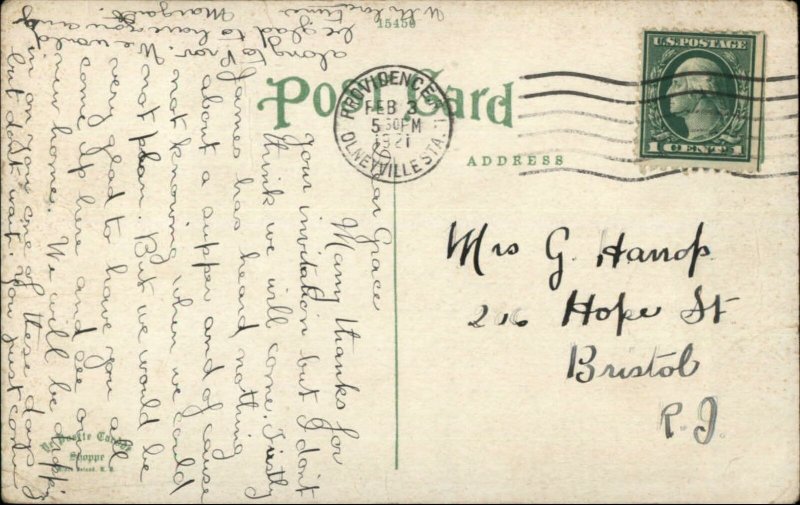 15459
Post Card
ADDRESS
PROVIDENCE R.I.
FEB 3
5 30 PM
1921
OLNEYVILLE STA.
U.S. POSTAGE
1 CENTS 1
Mrs G. Harrop
216 Hope St
Bristol
R.I.
Dear Grace
Many thanks for
your invitation but I don't
think we will come. Firstly
James has heard nothing
about a supper and of cause
not knowing when we could
not plan. But we would be
very glad to have you all
come up here and see our
new homes. We will be dropping
in on one of these days
but don't wait. You just come
along to Prov. We would
be glad to have you any
time
With love
Margaret.
Shoppe